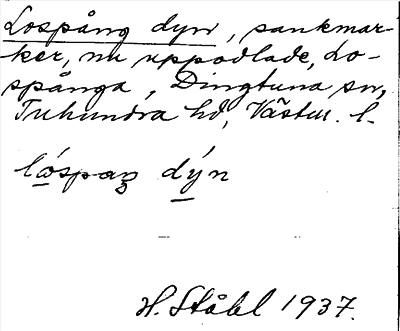 Lospång dyn, sankmar-
ker, nu uppodlade, Lo-
spånga, Dingtuna sn,
Tuhundra hd, Västm. l.
lóspaŋ dýn
H. Ståhl 1937.